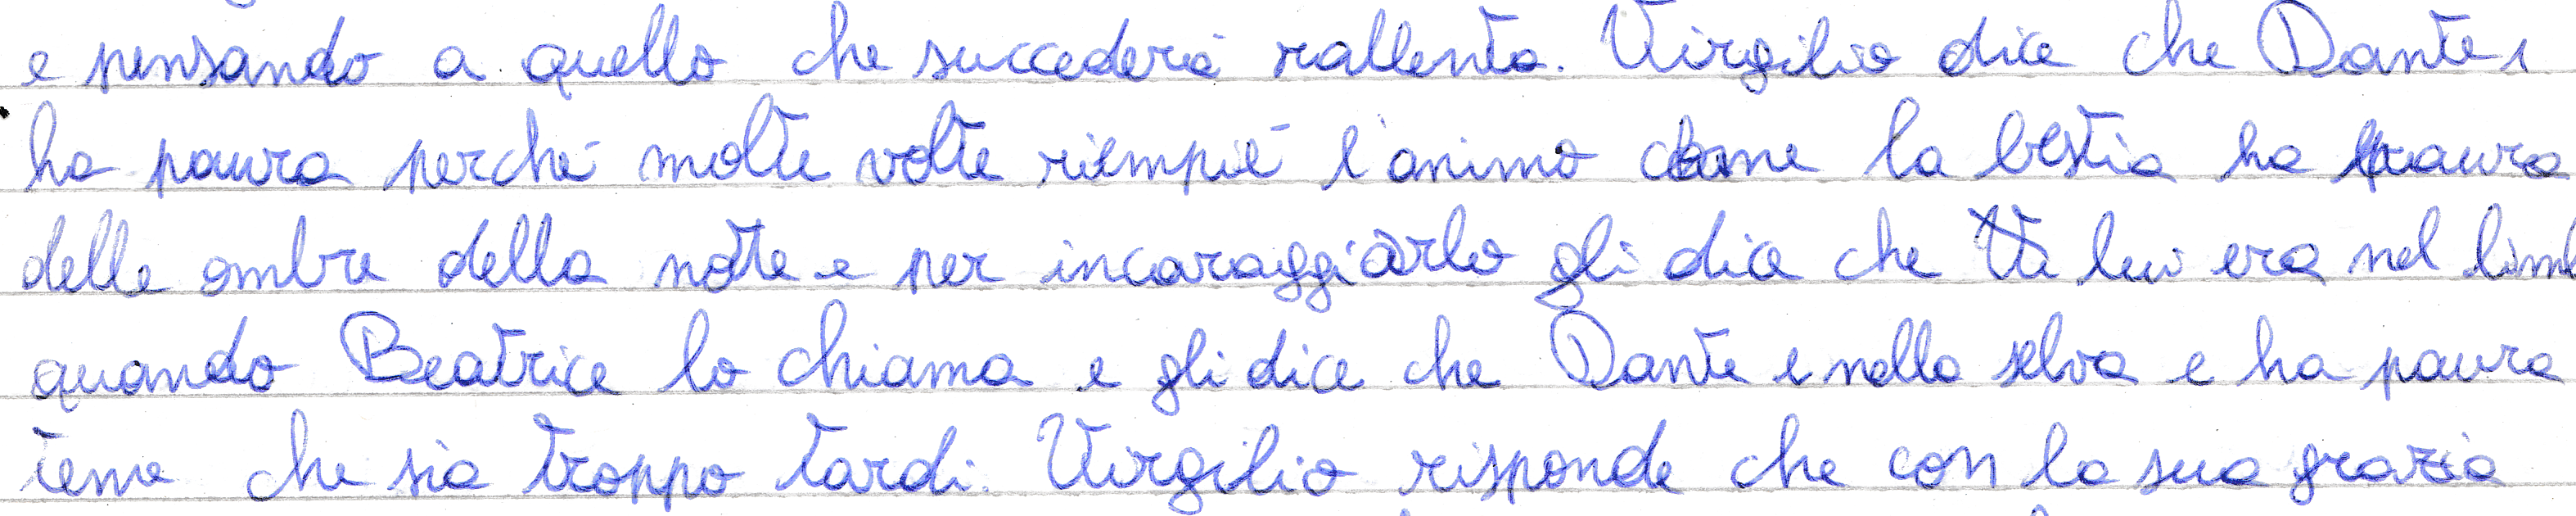 e pensando a quello che succederà rallenta. Virgilio dice che Dante
ha paura perché molte volte riempie l'animo come la bestia ha paura
delle ombre della notte e per incoraggiarlo gli dice che lui era nel limb
quando Beatrice lo chiama e gli dice che Dante e nella selva e ha paura
teme che sia troppo tardi. Virgilio risponde che con la sua grazia